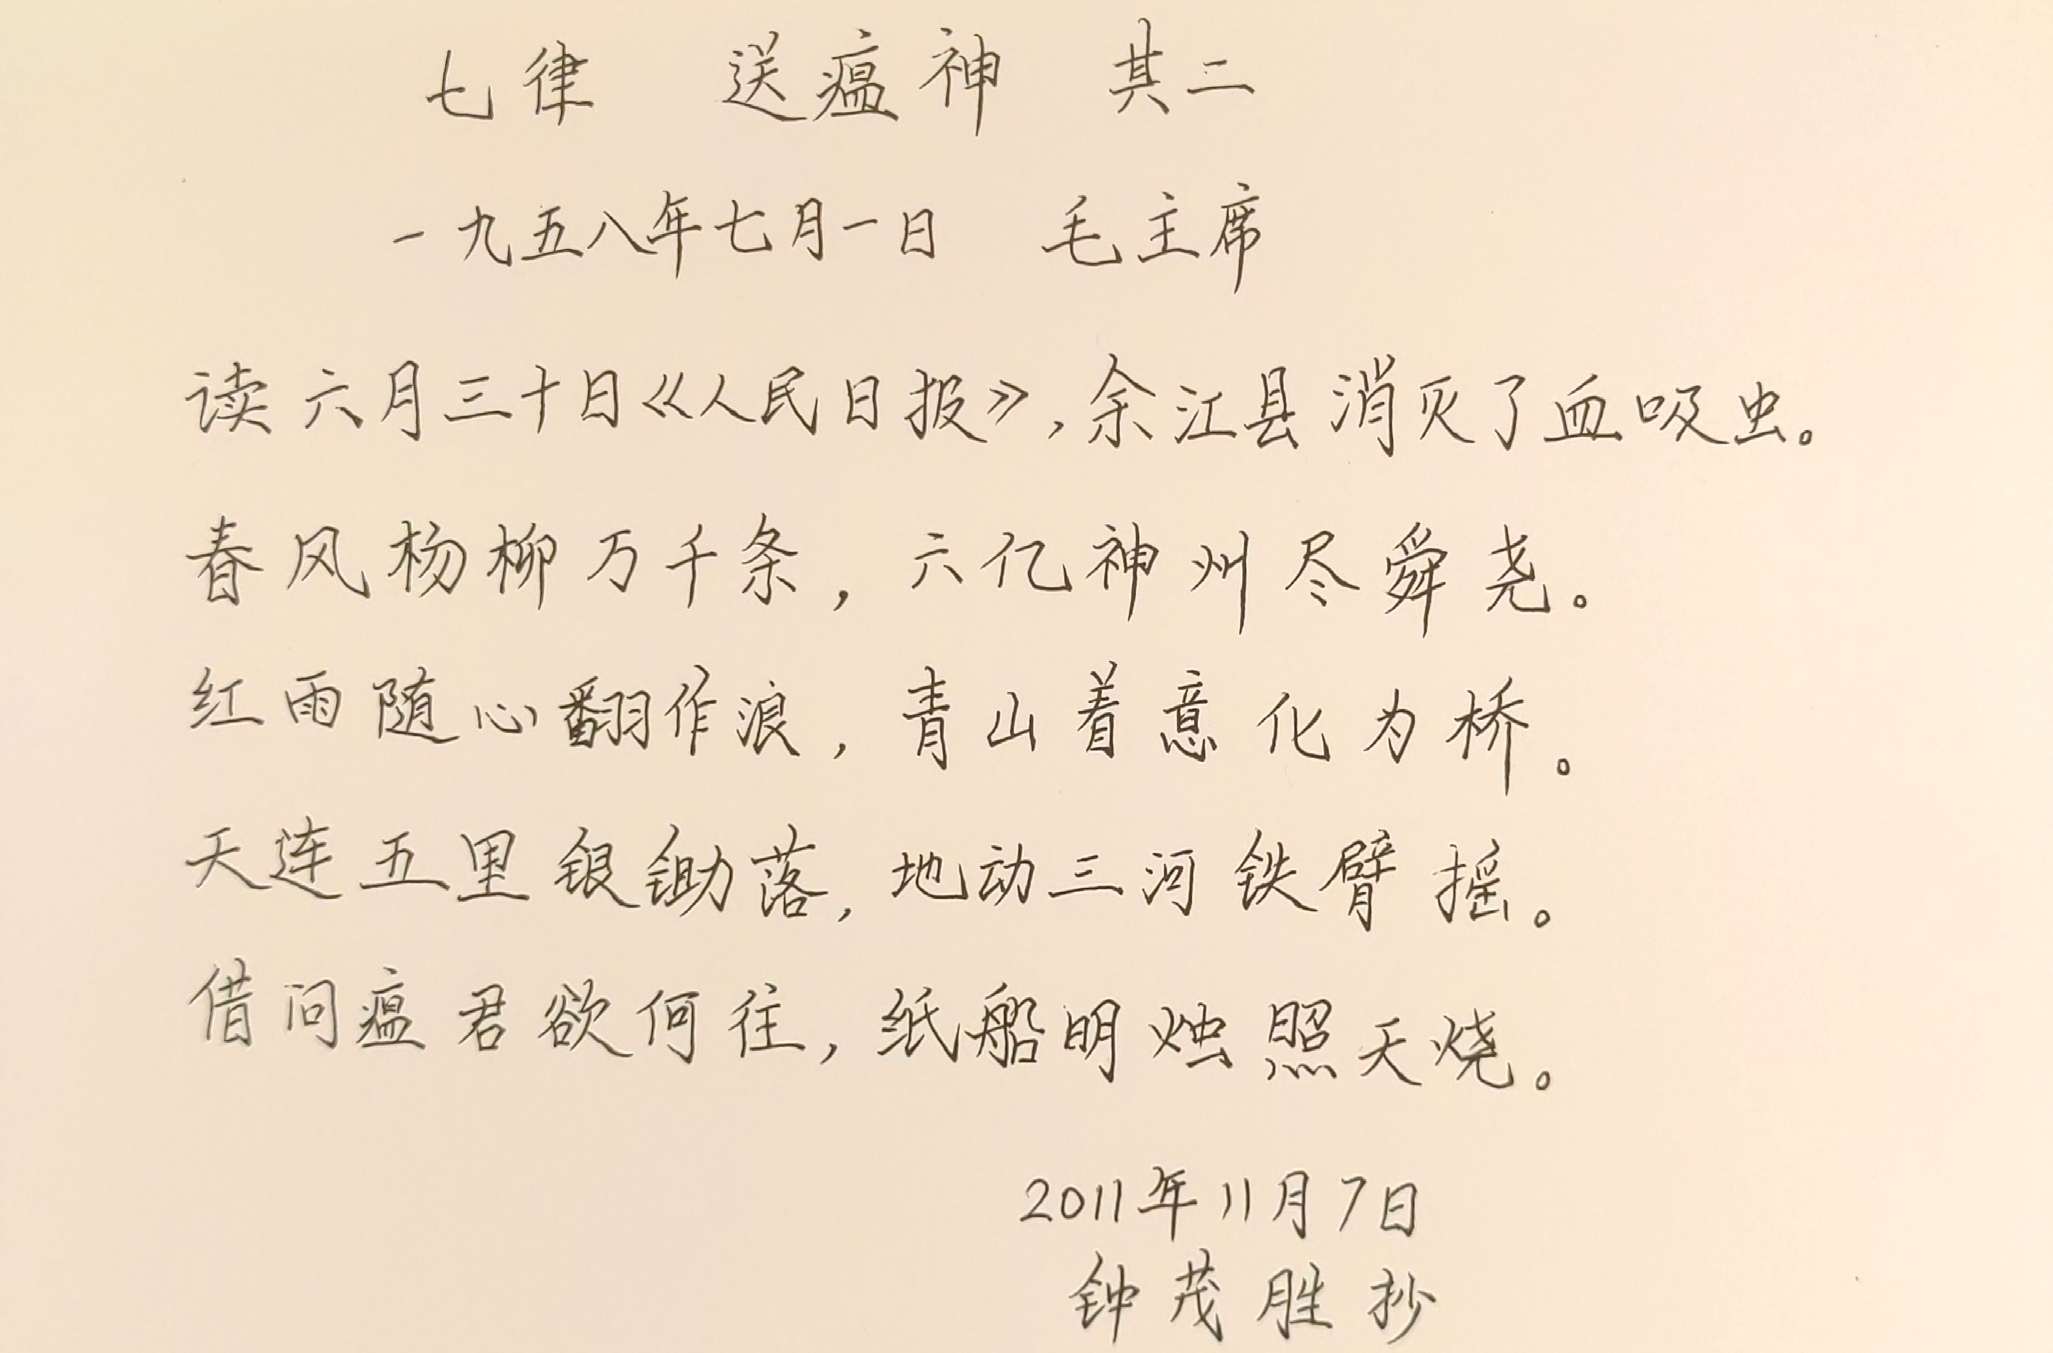 七律 送瘟神 其二
一九五八年七月一日 毛主席
读六月三十日《人民日报》,余江县消灭了血吸虫。
春风杨柳万千条,六亿神州尽舜尧。
红雨随心翻作浪,青山着意化为桥。
天连五里银锄落,地动三河铁臂摇。
借问瘟君欲何往,纸船明烛照天烧。
2011年11月7日
钟茂胜抄